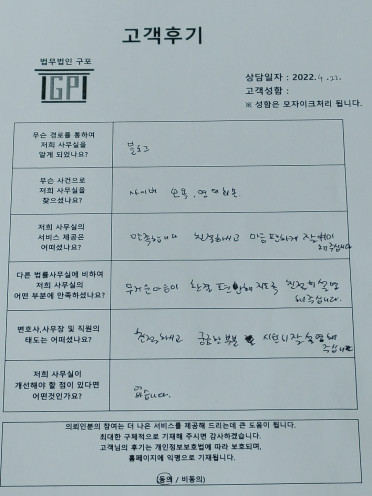 고객후기
법무법인 구포
GP
상담일자 : 2022. 4. 22.
고객성함 :
※ 성함은 모자이크처리 됩니다.
무슨 경로를 통하여
저희 사무실을
알게 되었나요?
블로그
무슨 사건으로
저희 사무실을
찾으셨나요?
사이버 모욕, 명예훼손
저희 사무실의
서비스 제공은
어떠셨나요?
만족합니다 친절하게 마음 편하게
해주십니다
다른 법률사무실에 비하여
저희 사무실의
어떤 부분에 만족하셨나요?
무거운 마음이 한결 편안해지도록 친절히 설명
해주십니다.
변호사,사무장 및 직원의
태도는 어떠셨나요?
친절하게 궁금한 부분 잘 설명해
주십니다
저희 사무실이
개선해야 할 점이 있다면
어떤것인가요?
없습니다.
의뢰인분의 참여는 더 나은 서비스를 제공해 드리는데 큰 도움이 됩니다.
최대한 구체적으로 기재해 주시면 감사하겠습니다.
고객님의 후기는 개인정보보호법에 따라 보호되며,
홈페이지에 익명으로 기재됩니다.
(동의 / 비동의)